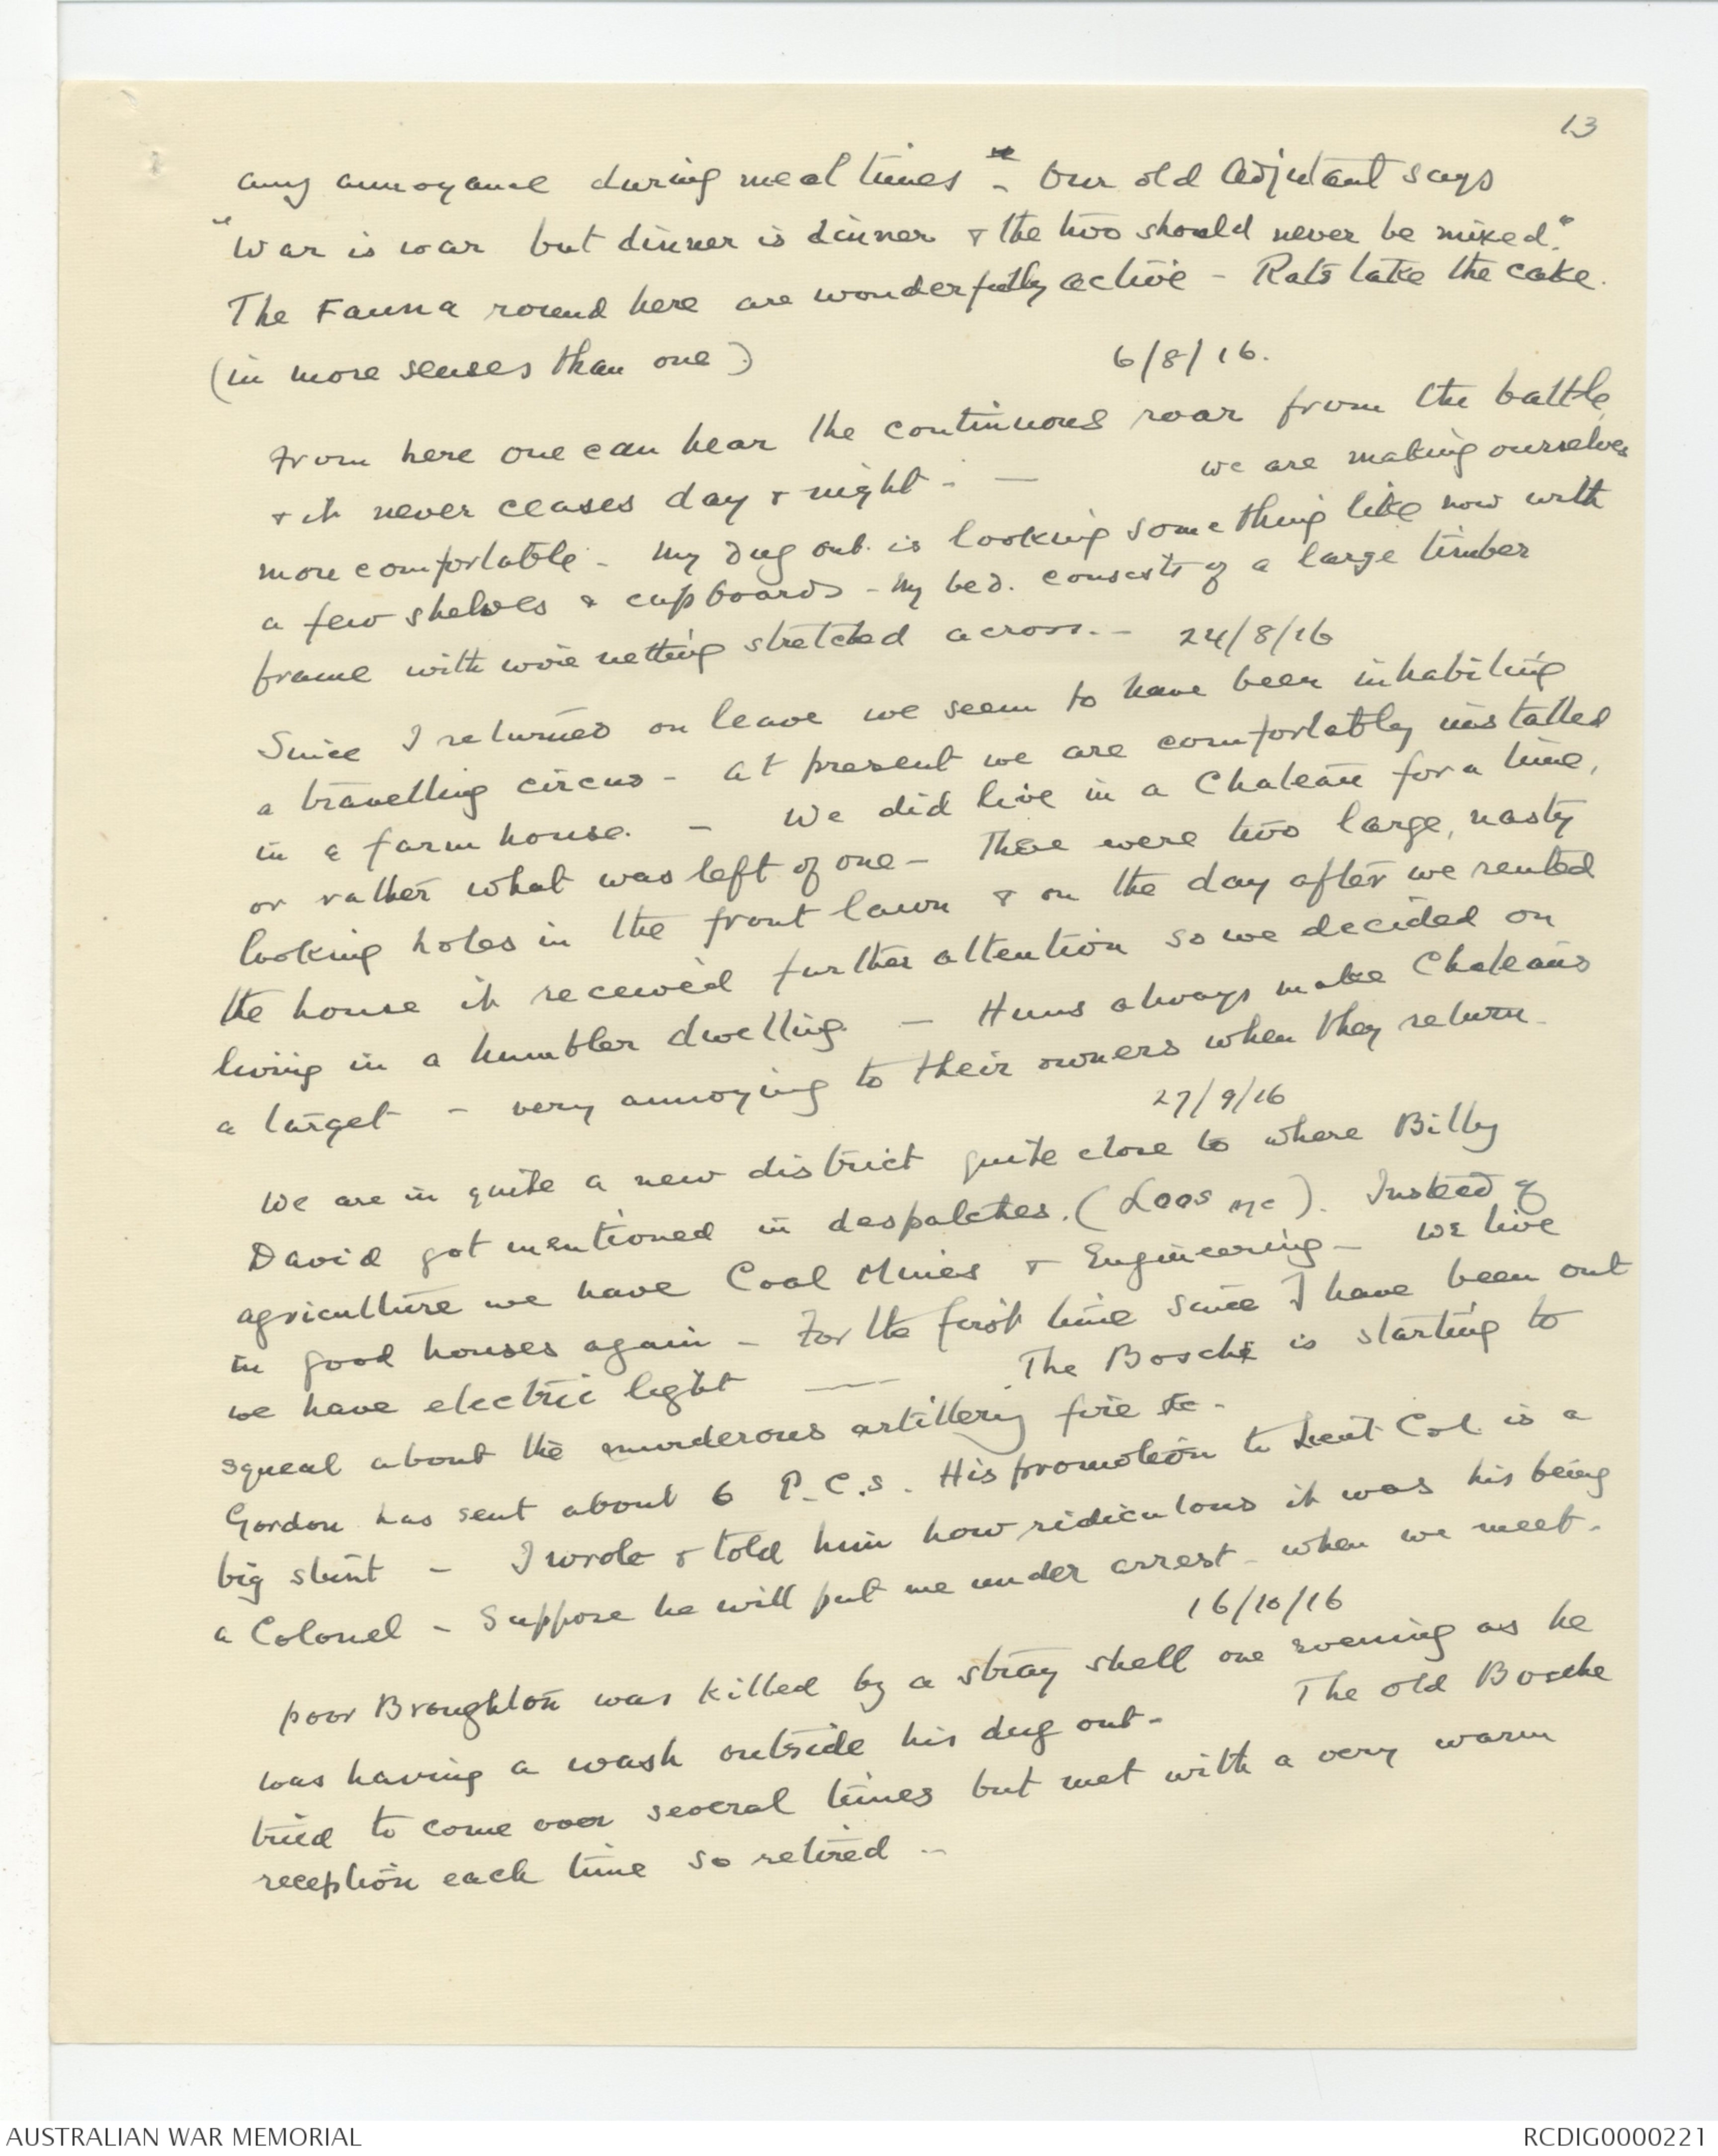 13
any annoyance during meal times" - Our old Adjutant says
"War is war but dinner is dinner & the two should never be mixed."
The Fauna round here are wonderfully active - Rats take the cake.
(in more senses than one)
6/8/16.
From here one can hear the continuous roar from the battle,
& it never ceases day & night - — we are making ourselves
more comfortable - My dug out is looking something like now with
a few shelves & cupboards - My bed. consists of a large timber
frame with wire netting stretched across. -
24/8/16
Since I returned on leave we seem to have been inhabiting
a travelling circus - at present we are comfortably installed
in a farm house. - We did live in a Chateau for a time,
or rather what was left of one - There were two large, nasty
looking holes in the front lawn & on the day after we rented
the house it received further attention so we decided on
living in a humbler dwelling. - Huns always make Chateaus
a target - very annoying to their owners when they return -
27/9/16
We are in quite a new district quite close to where Billy
David got mentioned in despatches. (Loos etc). Instead of
agriculture we have Coal Mines & Engineering - We live
in good houses again - For the first time since I have been out
we have electric light — The Bosche is starting to
squeal about the murderous artillery fire etc -
Gordon has sent about 6 P.C.s. His promotion to Lieut Col. is a
big stunt - I wrote & told him how ridiculous it was his being
a Colonel - Suppose he will put me under arrest - when we meet -
16/10/16
poor Broughton was killed by a stray shell one evening as he
was having a wash outside his dug out - The old Bosche
tried to come over several times but met with a very warm
reception each time so retired -
AUSTRALIAN WAR MEMORIAL
RCDIG0000221